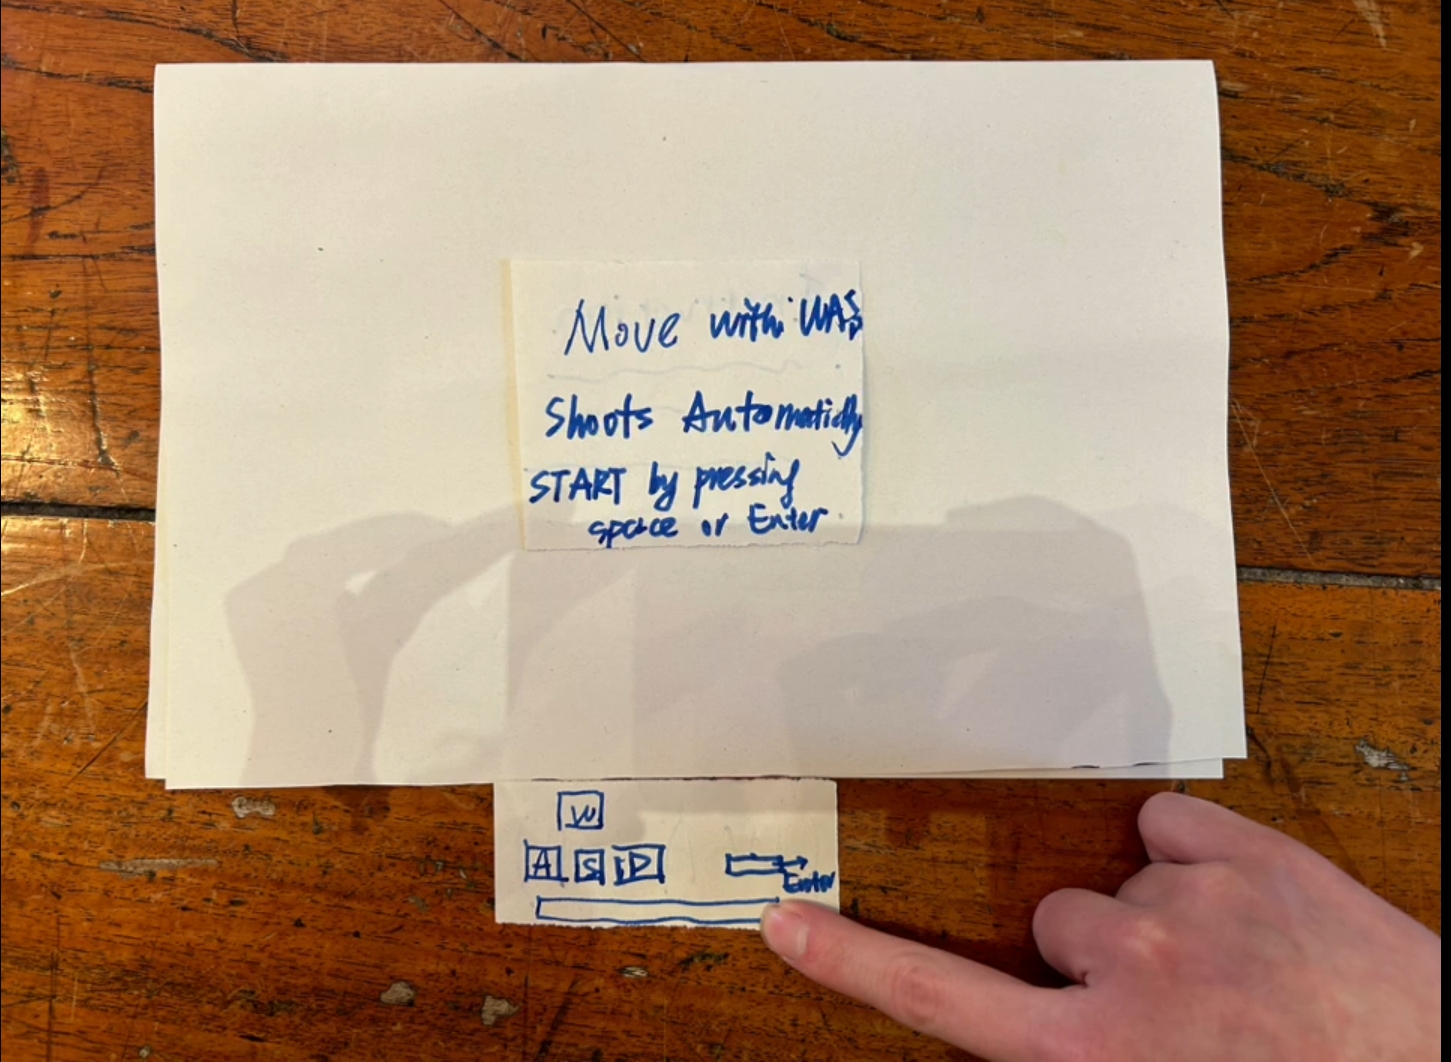 Move with WASD
Shoots Automatically
START by pressing
space or Enter
W
A S D
Enter